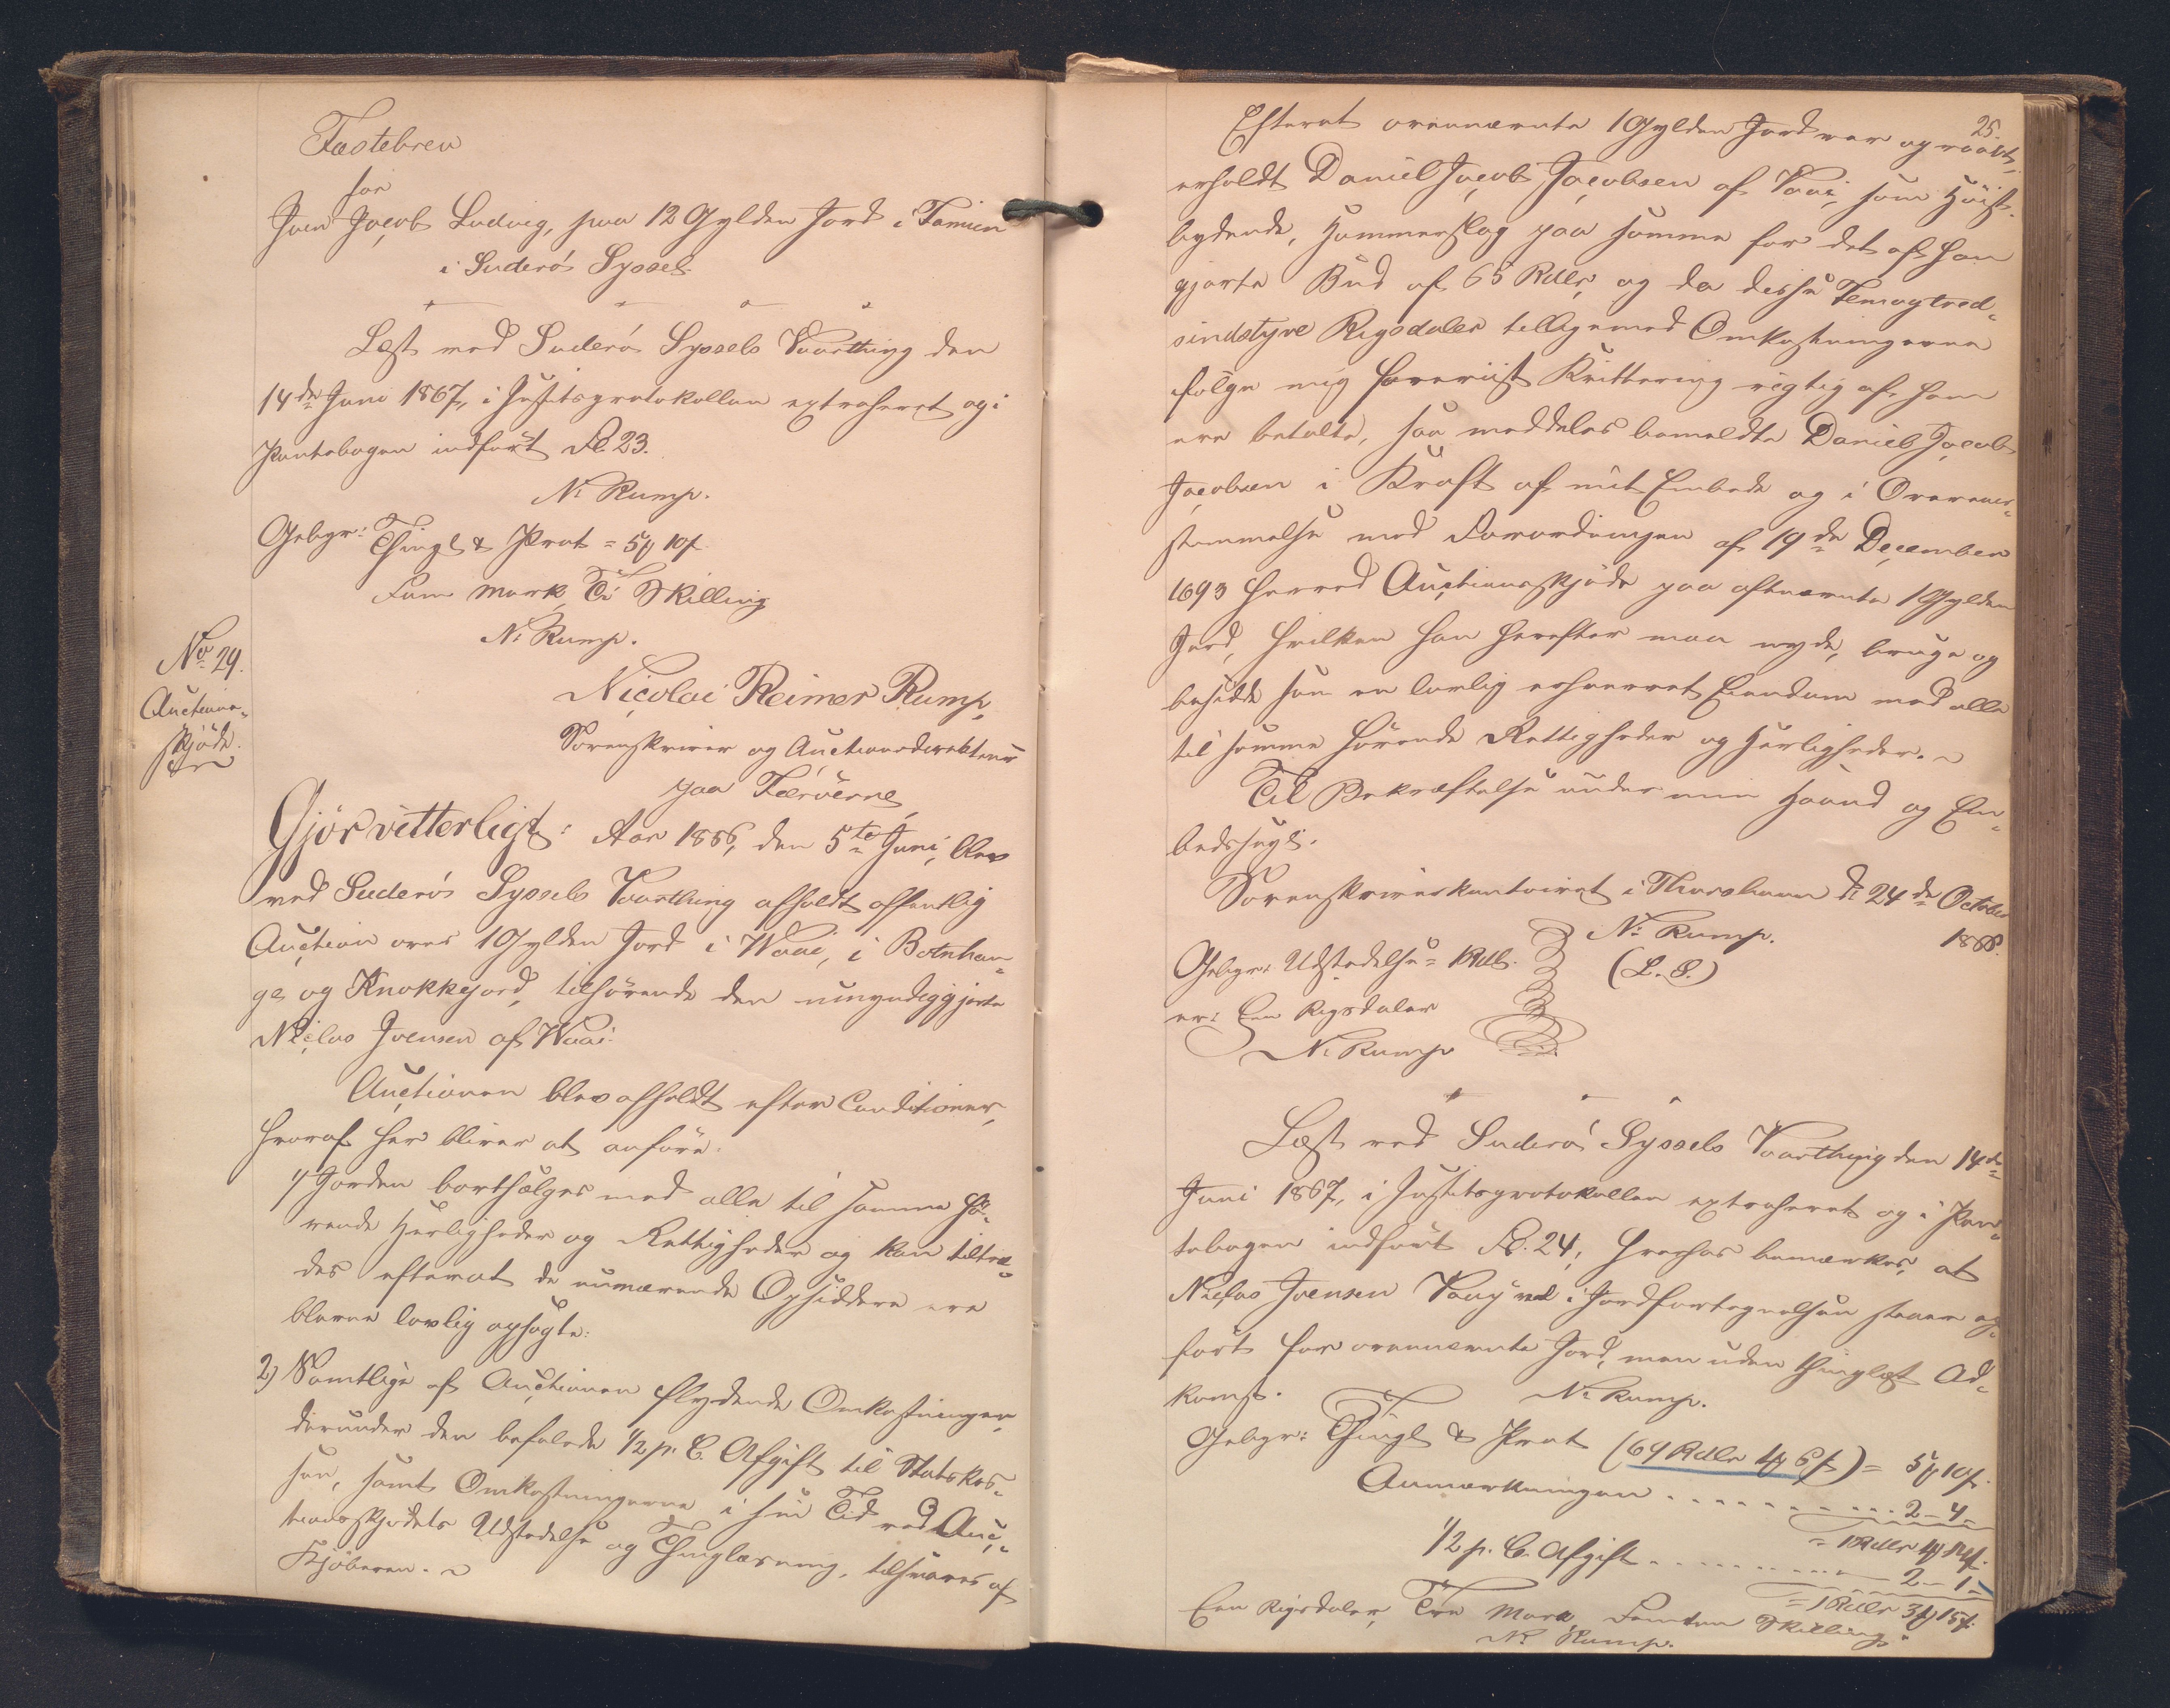 Fæstebrev
for
Joen Jacob Ludvig, paa 12 Gylden Jord i Famien
i Suderö Syssel.
Læst ved Suderö Syssels Vaarthing den
14de Juni 1867, i Justitsprotokollen extraheret og i
Pantebogen indført Fol. 23.
N. Rump.
Gebyr: Thingl. & Prot = 5 10
Fem Mark Ti Skilling
N. Rump.
No 29.
Auctions-
skjöde.
Nicolai Reimer Rump,
Sorenskriver og Auctionsdirekteur
paa Færöerne,
Gjör vitterligt: Aar 1866, den 5te Juni, blev
ved Suderö Syssels Vaarthing afholdt offentlig
Auction over 1 Gylden Jord i Waai, i Botnhau-
ge og Knokkejord, tilhörende den umyndiggjorte
Niclas Joensen af Waai.
Auctionen blev afholdt efter Conditioner,
hvoraf her bliver at anföre:
1) Jorden bortsælges med alle til samme hö-
rende Herligheder og Rettigheder og kan tiltræ-
des efterat de nuværende Opsiddere ere
blevne lovlig opsagte:
2) Samtlige af Auctionen flydende Omkostninger,
derunder den befalede 1/2 p. C. Afgift til Statskas-
sen, samt Omkostningerne i sin Tid ved Auc-
tionsskjödets Udstedelse og Thinglæsning, tilsvares af
Kjöberen.
25.
Efterat ovennævnte 1 Gylden Jord var opraabt,
erholdt Daniel Jacob Jacobsen af Vaai, som Höist-
bydende, Hammerslag paa samme for det af ham
gjorte Bud af 65 Rdlr, og da disse Femogtred-
sindstyve Rigsdaler tilligemed Omkostningerne
fölge mig foreviist Kvittering rigtig af ham
ere betalte, saa meddeles bemeldte Daniel Jacob
Jacobsen i Kraft af mit Embede og i Overeens-
stemmelse med Forordningen af 19de December
1693 herved Auctionsskjöde paa oftnævnte 1 Gylden
Jord, hvilken han herefter maa nyde, bruge og
besidde som en lovlig erhvervet Eiendom med alle
til samme hörende Rettigheder og Herligheder.
Til Bekræftelse under min Haand og Em-
bedssegl.
Sorenskriverkontoiret i Thorshavn d. 24de October
1866.
N. Rump.
(L. S.)
Gebyr: Udstedelse = 1 Rdl.
er: Een Rigsdaler
N. Rump
Læst ved Suderö Syssels Vaarthing den 14de
Juni 1867, i Justitsprotokollen extraheret og i Pan-
tebogen indfört Fol. 24, hvorhos bemærkes, at
Niclas Joensen Vaag ved i Jordfortegnelsen staaer op-
fört for ovennævnte Jord, men uden thinglæst Ad-
komst.
N. Rump.
Gebyr: Thingl. & Prot (69 Rdlr 4 6) = 5 10
Anmærkningen . . . . . . . . . . 2 - 4 -
= 1 Rdlr 4
1/2 p. C. Afgift . . . . . . . . 2 - 1 -
= 1 Rdlr 3 15
Een Rigsdaler, Tre Mark, Femten Skilling
N. Rump.